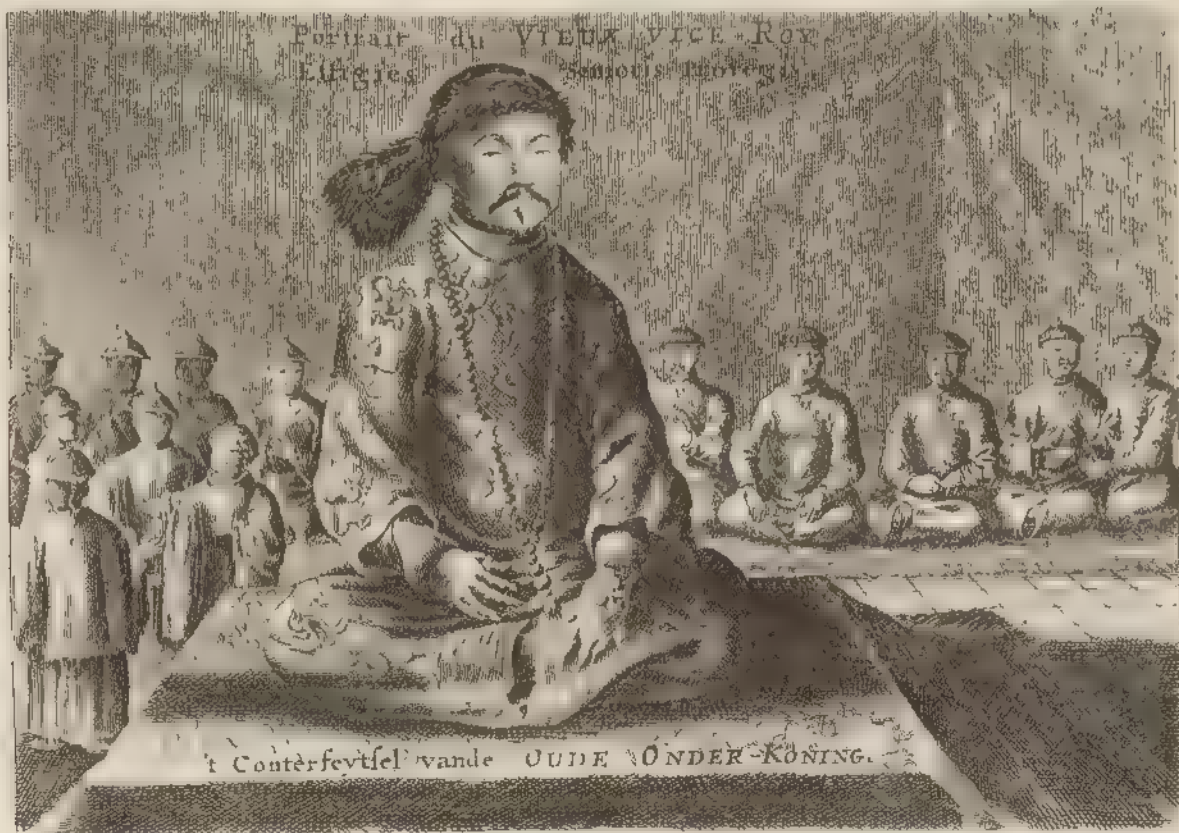 Portrait du VIEUX VICE-ROY
Effigies Senioris Proregis
't Conterfeytsel vande OUDE ONDER-KONING.